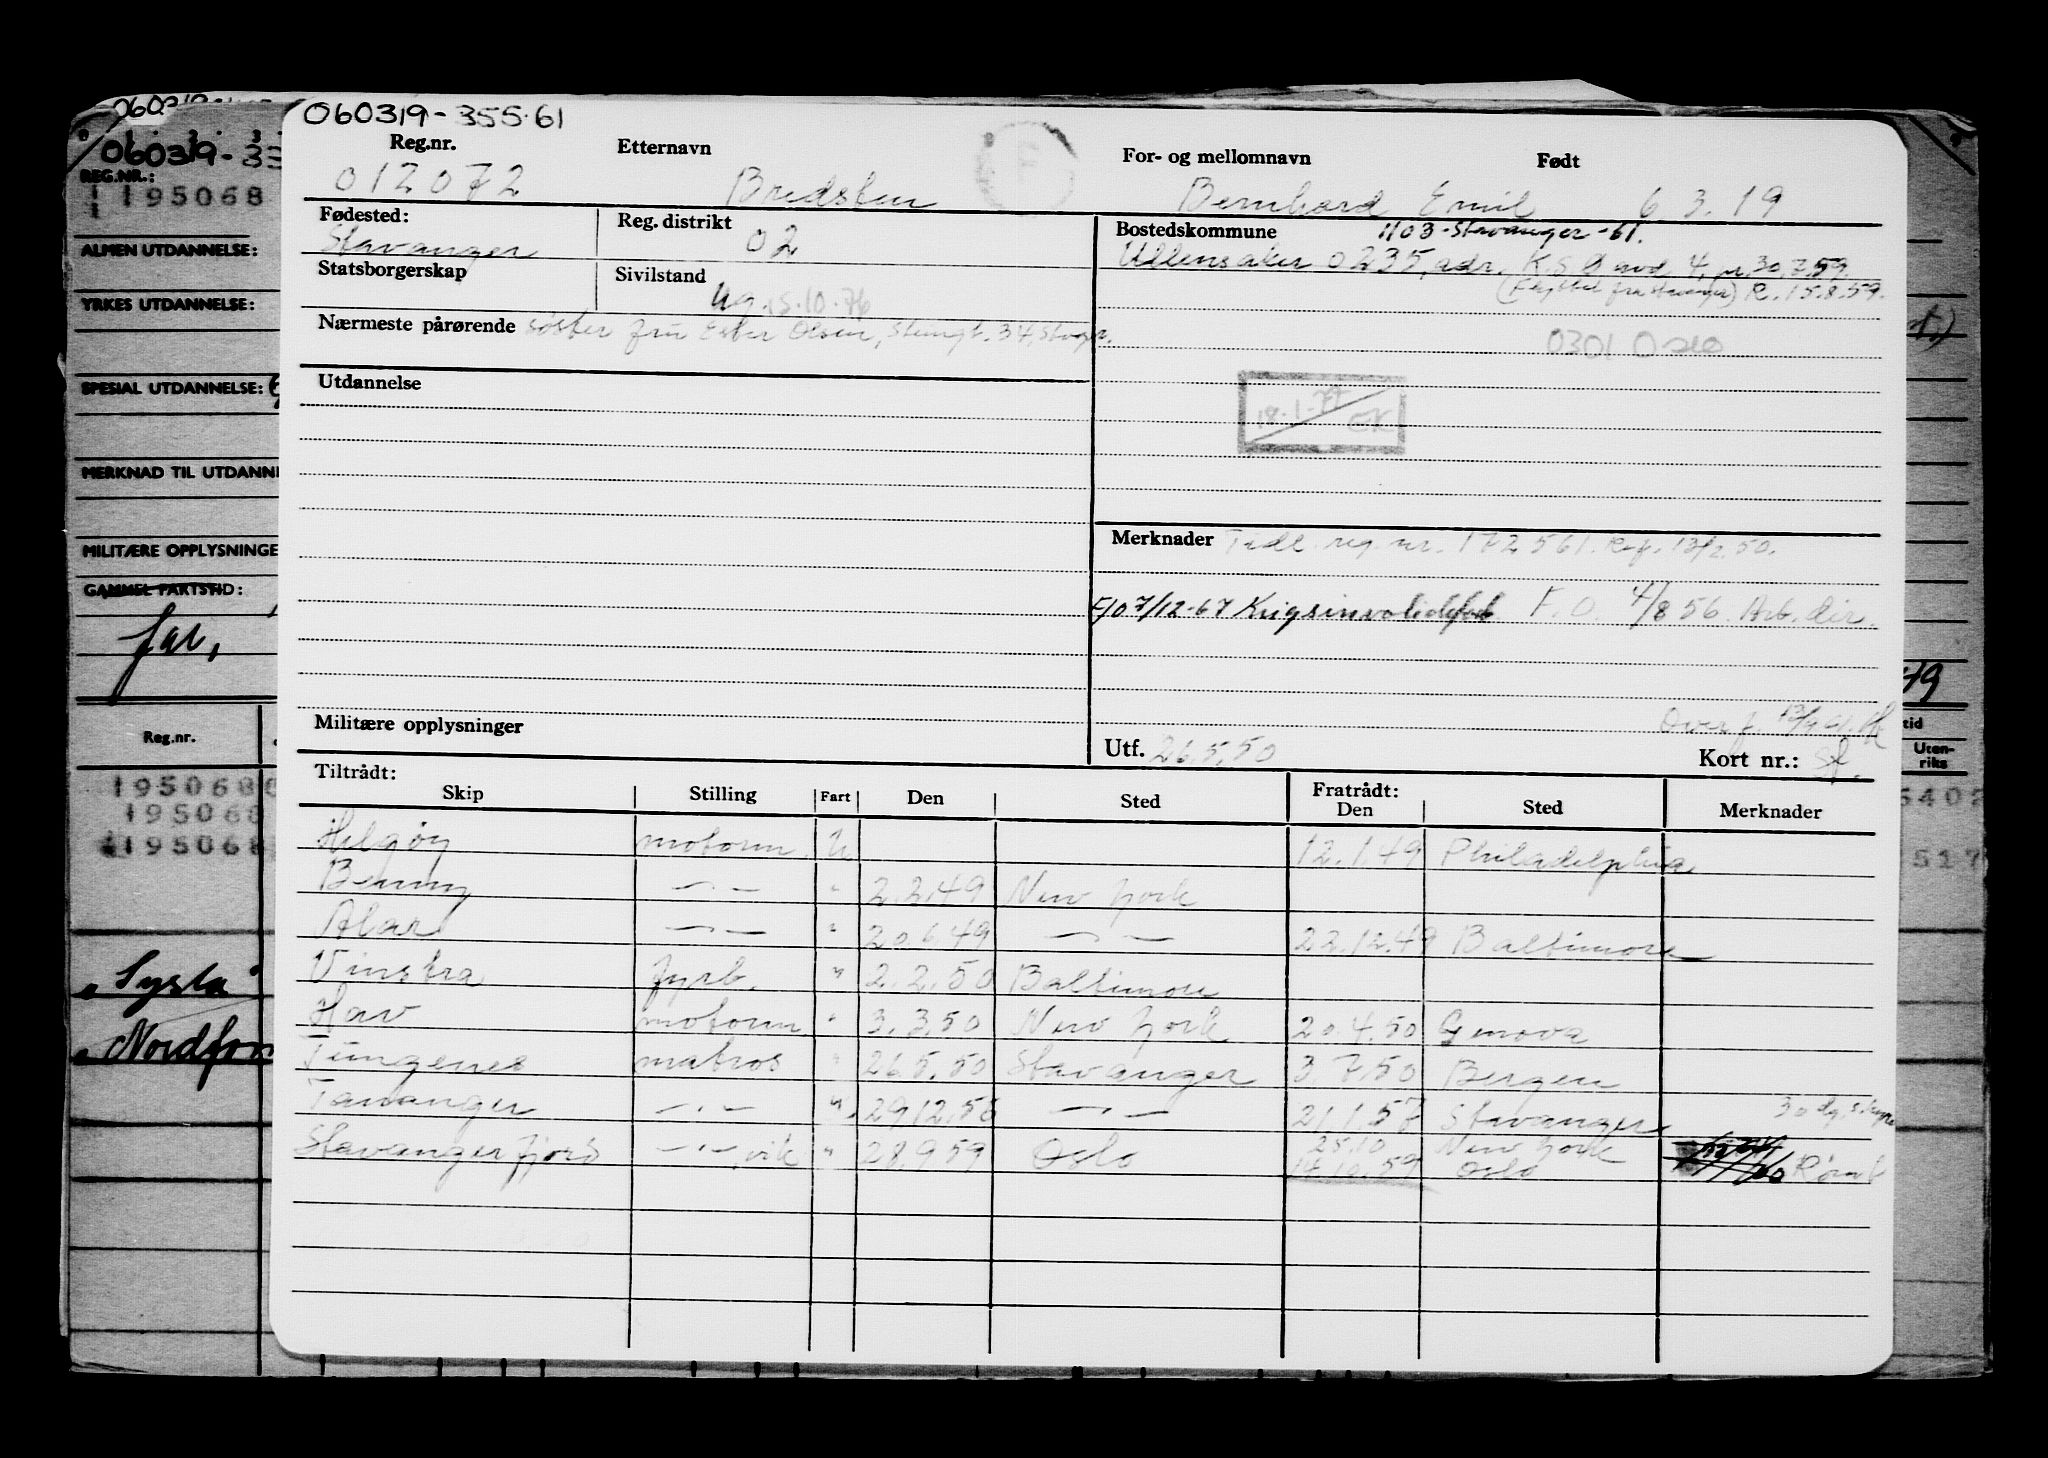 060319-355.61
Reg.nr. Etternavn For- og mellomnavn Født
012072 Bredsten Bernhard Emil 6 3.19
Fødested: Reg. distrikt Bostedskommune 1103-Stavanger-61.
Stavanger 02 Ullensaker 0235, adr. K.S.O avd 4, 30.7.59.
Statsborgerskap Sivilstand (Flyttet fra Stavanger) R. 15.8.59.
ug. 15.10.76
Nærmeste pårørende søster fru Ester Olsen, 34, Stvgr.
0301 Oslo
Utdannelse
18.1.77 OK
Merknader Tidl. reg. nr. 172561. 13/2.50.
F/O 7/12-67 Krigsinvalidesak F.O. 4/8 56. Arb. dir.
Militære opplysninger
Overf. 13/4 61.
Utf. 26.5.50 Kort nr.:
Tiltrådt: Fratrådt:
Skip Stilling Fart Den Sted Den Sted Merknader
Helgøy motorm. U 12.1.49 Philadelphia
Benny —·— " 2.2.49 New York
Alar —·— " 20.6.49 —·— 22.12.49 Baltimore
Vinstra fyrb. " 2.2.50 Baltimore
Hav motorm " 3.3.50 New York 20.4.50 Genova
Tungenes matros " 26.5.50 Stavanger 3 7.50 Bergen
Tananger —·— " 29.12.56 —·— 21.1.57 Stavanger 30 dg. s.hyre
Stavangerfjord —·— vik " 28.9.59 Oslo 25.10 New York
14.10.59 Oslo Rømt
060319-33
REG.NR.:
195068
ALMEN UTDANNELSE:
YRKES UTDANNELSE:
SPESIAL UTDANNELSE:
MERKNAD TIL UTDANN
MILITÆRE OPPLYSNINGE
GAMMEL FARTSTID:
far,
Reg.nr.
1950680
195068
195068
Sysla
Nordfon
t.)
49
tid
Uten-
riks
5402
517